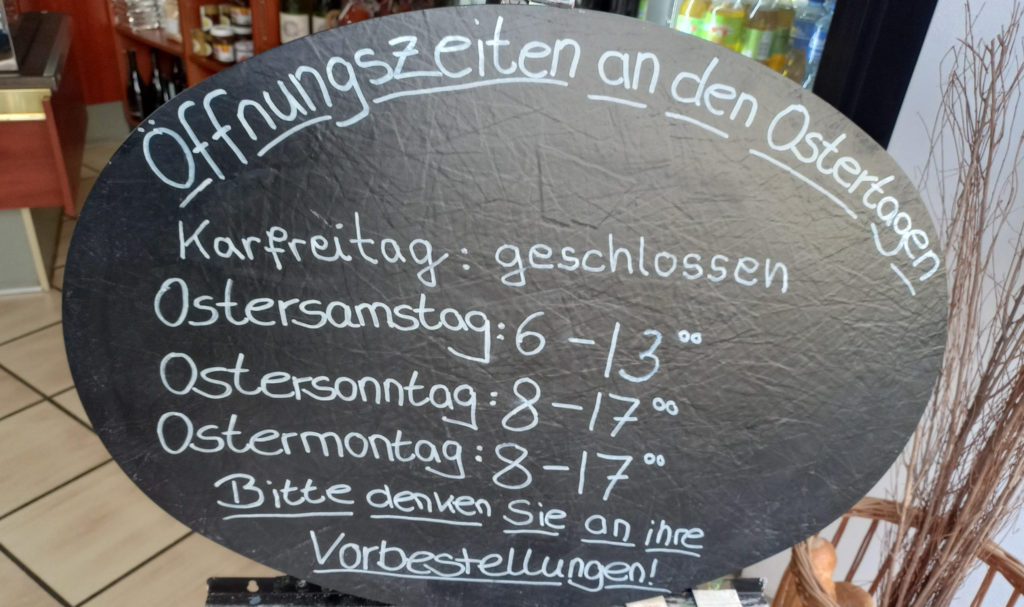 Öffnungszeiten an den Ostertagen
Karfreitag: geschlossen
Ostersamstag: 6 - 13⁰⁰
Ostersonntag: 8 - 17⁰⁰
Ostermontag: 8 - 17⁰⁰
Bitte denken Sie an ihre
Vorbestellungen!